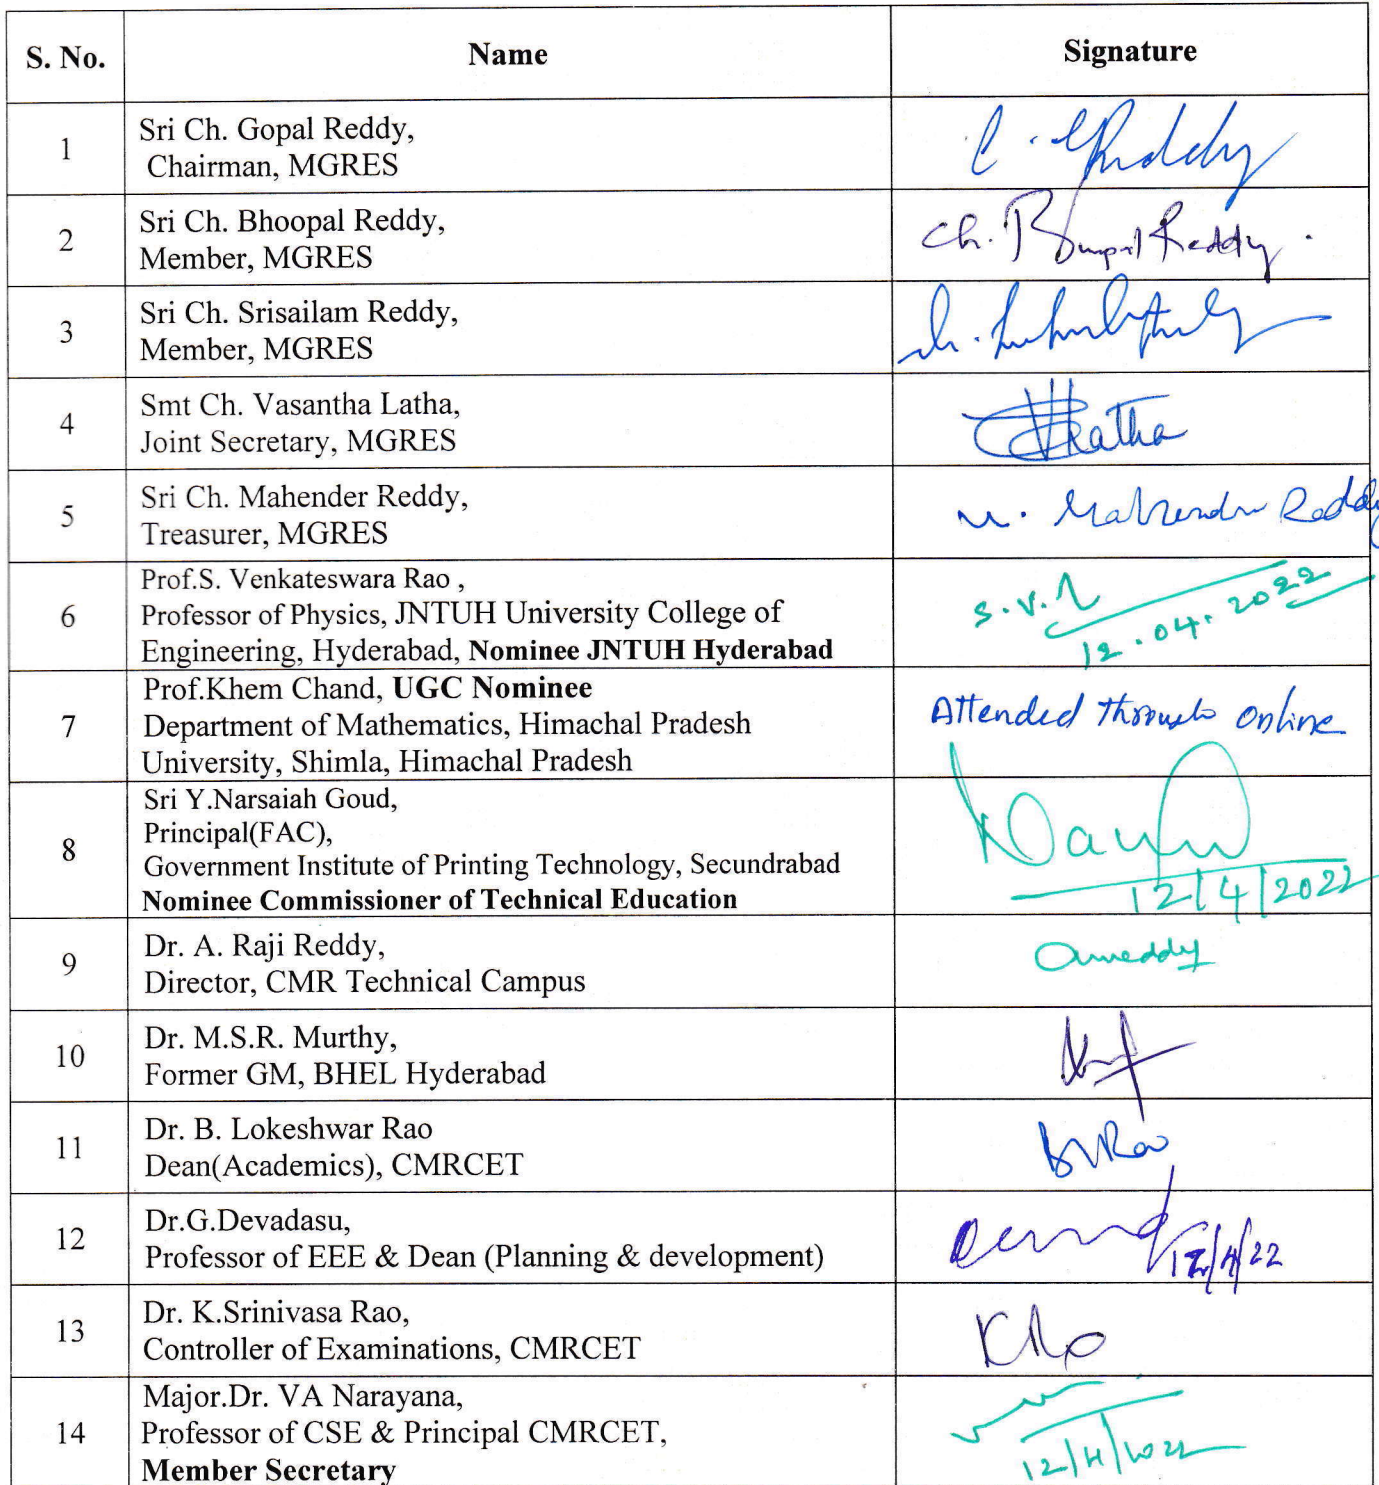 S. No. Name Signature
1 Sri Ch. Gopal Reddy,
Chairman, MGRES
2 Sri Ch. Bhoopal Reddy,
Member, MGRES
Ch. Bhupal Reddy.
3 Sri Ch. Srisailam Reddy,
Member, MGRES
4 Smt Ch. Vasantha Latha,
Joint Secretary, MGRES
Latha
5 Sri Ch. Mahender Reddy,
Treasurer, MGRES
Mahender Reddy
6 Prof.S. Venkateswara Rao ,
Professor of Physics, JNTUH University College of
Engineering, Hyderabad, Nominee JNTUH Hyderabad
S.V.
12.04.2022
7 Prof.Khem Chand, UGC Nominee
Department of Mathematics, Himachal Pradesh
University, Shimla, Himachal Pradesh
Attended through online
8 Sri Y.Narsaiah Goud,
Principal(FAC),
Government Institute of Printing Technology, Secundrabad
Nominee Commissioner of Technical Education
12/4/2022
9 Dr. A. Raji Reddy,
Director, CMR Technical Campus
10 Dr. M.S.R. Murthy,
Former GM, BHEL Hyderabad
11 Dr. B. Lokeshwar Rao
Dean(Academics), CMRCET
12 Dr.G.Devadasu,
Professor of EEE & Dean (Planning & development)
12/4/22
13 Dr. K.Srinivasa Rao,
Controller of Examinations, CMRCET
14 Major.Dr. VA Narayana,
Professor of CSE & Principal CMRCET,
Member Secretary
12/4/2022